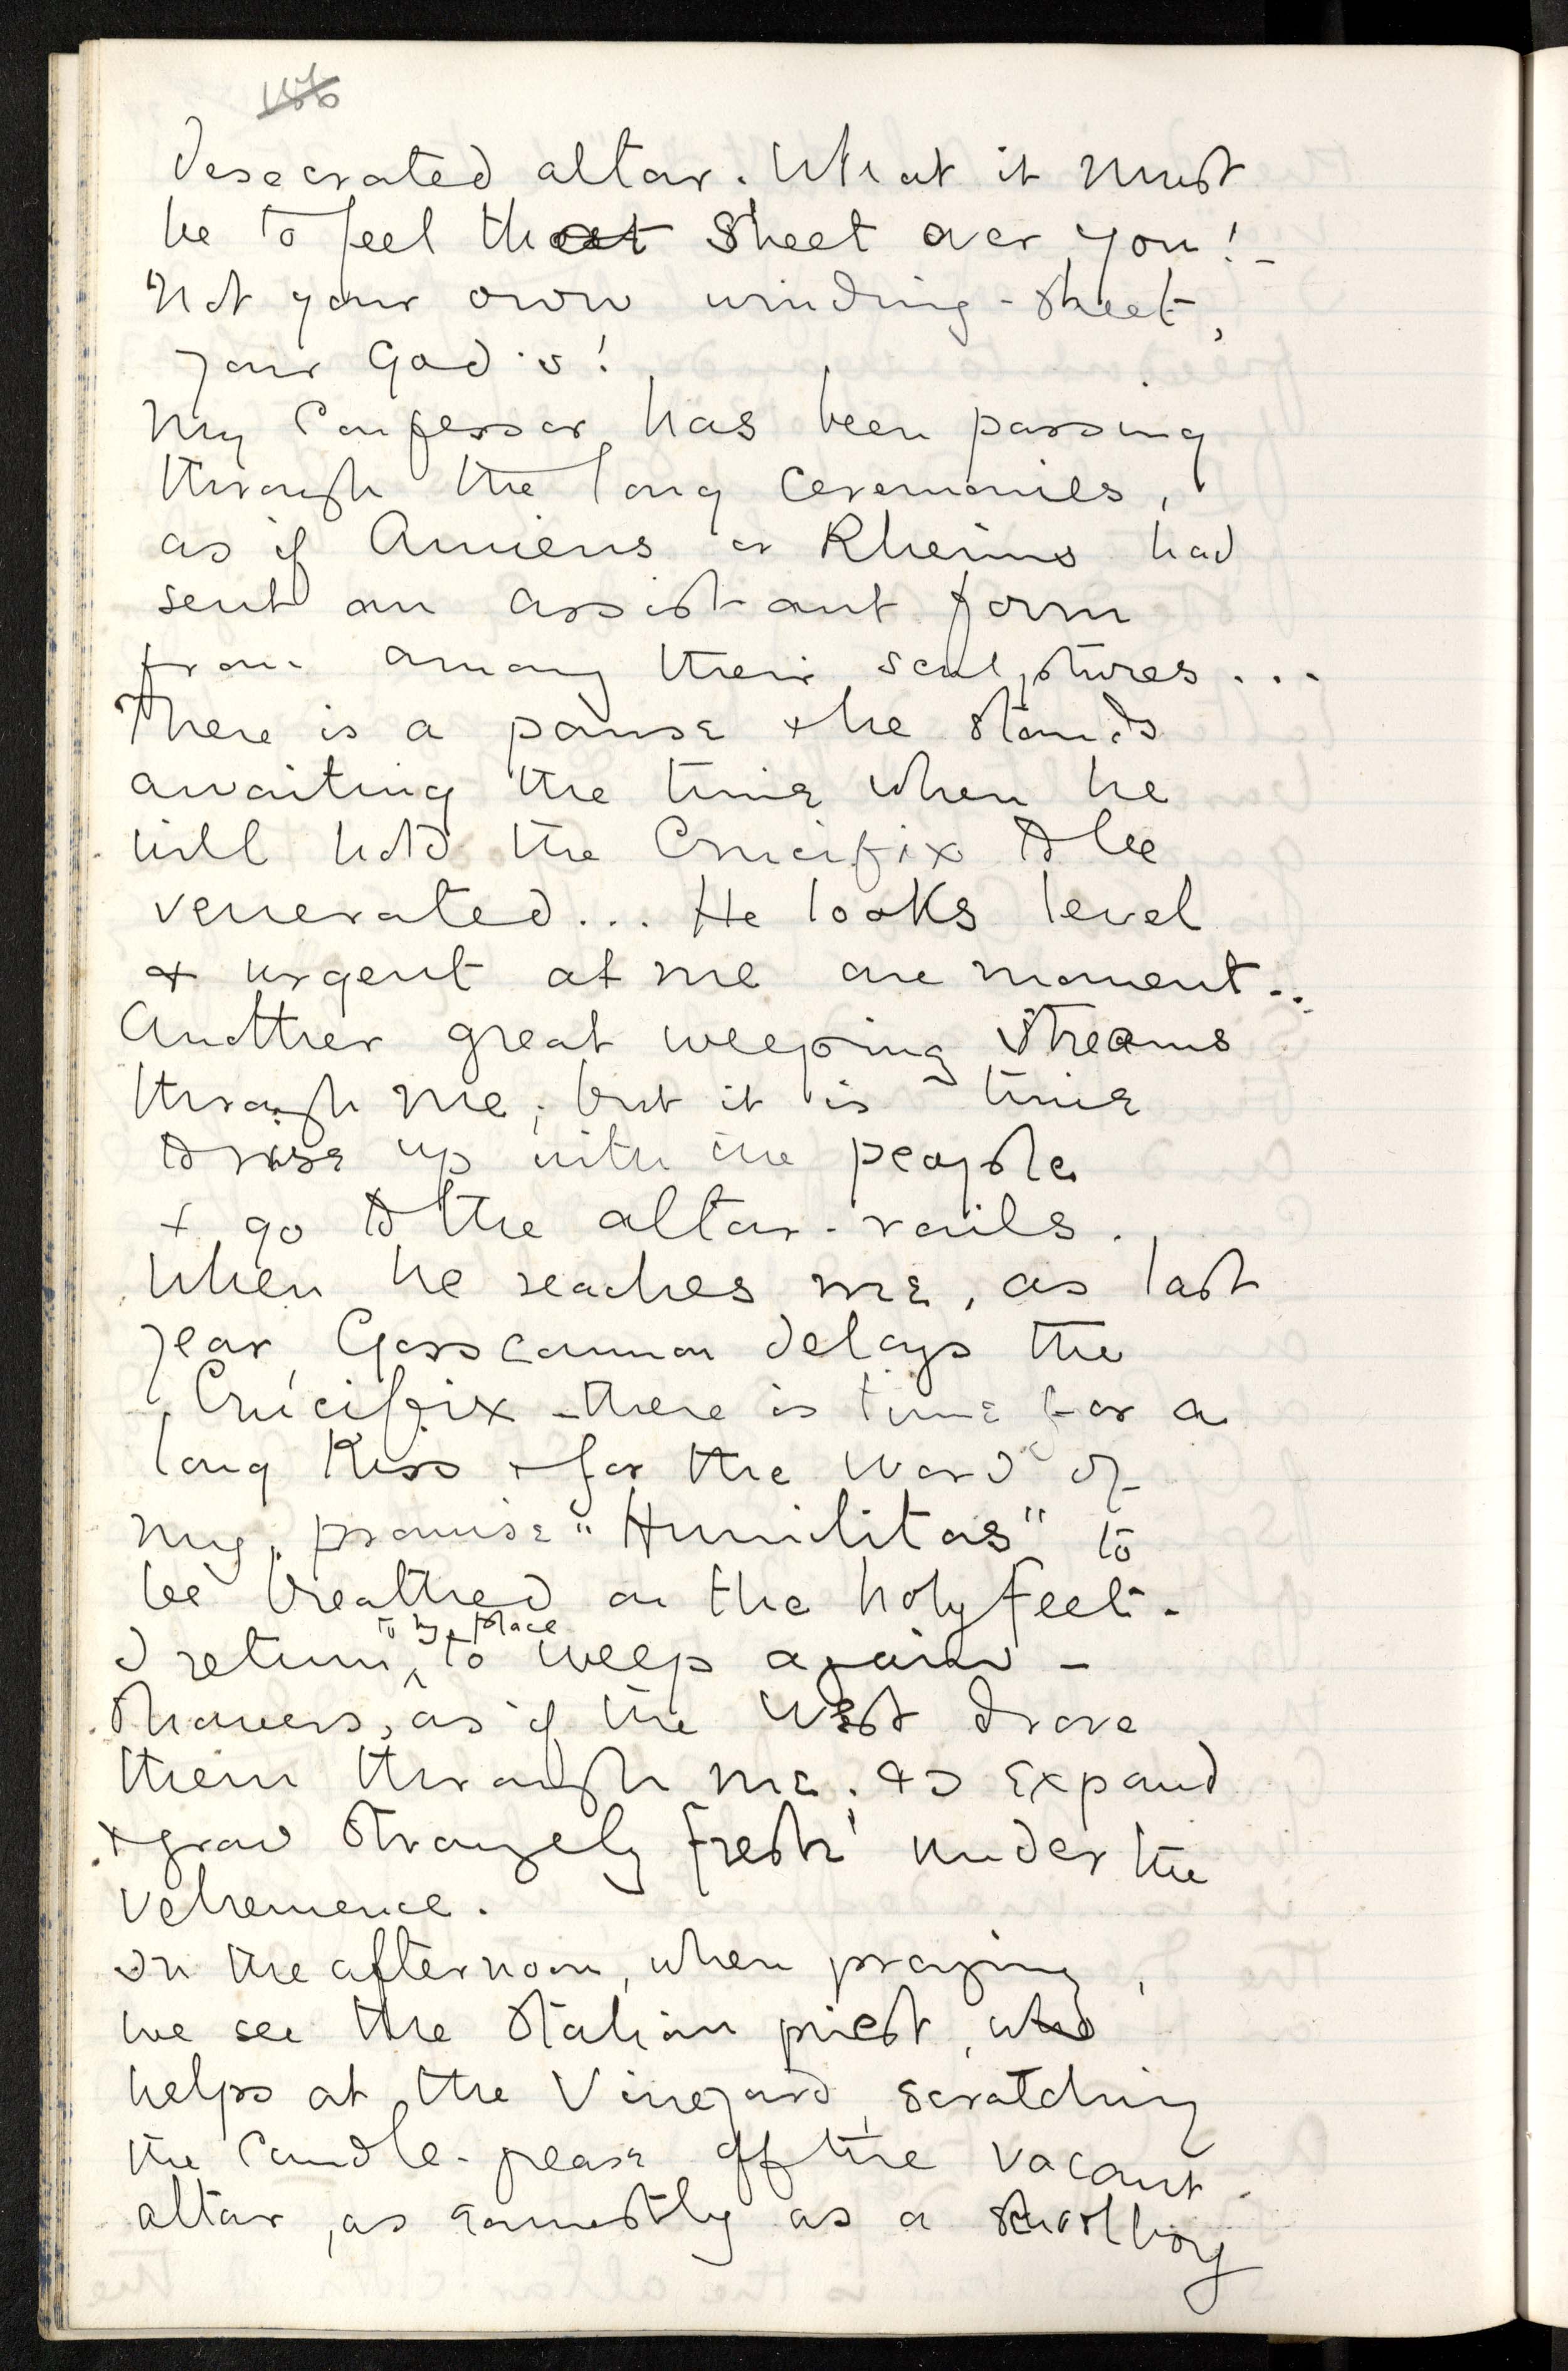 186
desecrated altar. What it must
be to feel that sheet over you! -
Not your own winding-sheet,
your God's!
My Confessor has been passing
through the long ceremonies,
as if Amiens or Rheims had
sent an assistant form
from among their sculptures...
There is a pause & he stands
awaiting the time when he
will hold the Crucifix to be
venerated... He looks level
& urgent at me one moment...
Another great weeping streams
through me; but it is time
to rise up with the people
& go to the altar-rails.
When he reaches me, as last
year, Gosscannon delays the
Crucifix - there is time for a
long Kiss & for the word of
my promise "Humilitas" to
be breathed on the holy feet.
I return to my place to weep again -
showers, as if the West drove
them through me. & I expand
& grow strangely fresh under the
vehemence.
In the afternoon, when praying,
we see the Italian priest, who
helps at the Vineyard, scratching
the candle-grease off the vacant
altar, as earnestly as a schoolboy